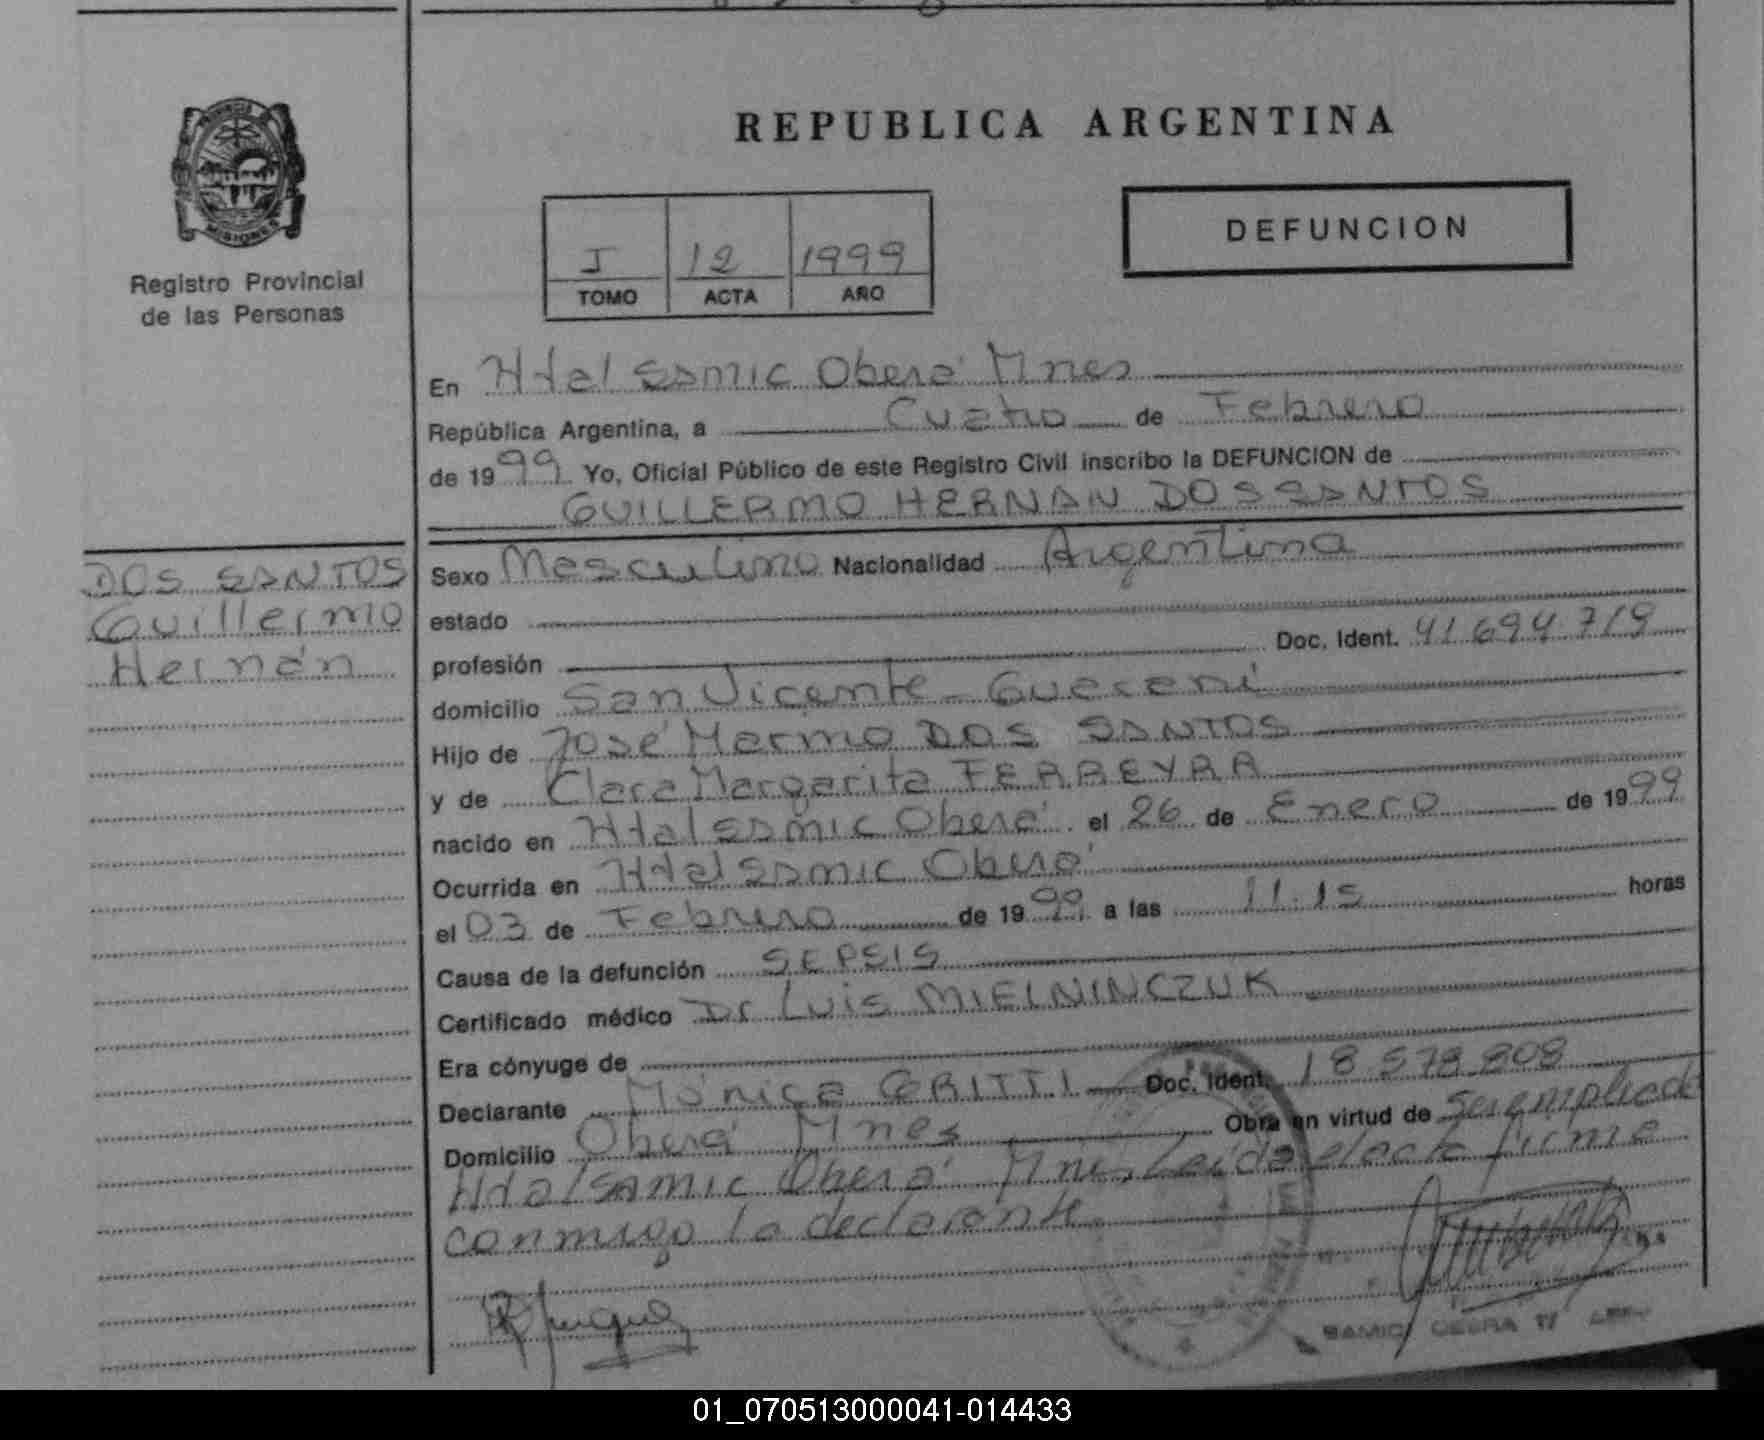 PROVINCIA DE
MISIONES
Registro Provincial
de las Personas
REPUBLICA ARGENTINA
DEFUNCION
I 12 1999
TOMO ACTA AÑO
En Htal Samic Oberá Mnes
República Argentina, a Cuatro de Febrero
de 1999 Yo, Oficial Público de este Registro Civil inscribo la DEFUNCION de
GUILLERMO HERNAN DOS SANTOS
DOS SANTOS
Guillermo
Hernán
Sexo Masculino Nacionalidad Argentina
estado
profesión Doc. Ident. 41.694.719
domicilio San Vicente - Guaraní
Hijo de José Marino DOS SANTOS
y de Clara Margarita FERREYRA
nacido en Htal Samic Oberá el 26 de Enero de 1999
Ocurrida en Htal Samic Oberá
el 03 de Febrero de 1999 a las 11.15 horas
Causa de la defunción SEPSIS
Certificado médico Dr Luis MIELNINCZUK
Era cónyuge de
Declarante Mónica GRITTI Doc. Ident. 18.578.808
Domicilio Oberá Mnes Obra en virtud de ser empleada
Htal Samic Oberá Mnes. Leída el acta firma
conmigo la declarante.
SAMIC OBERA
01_070513000041-014433